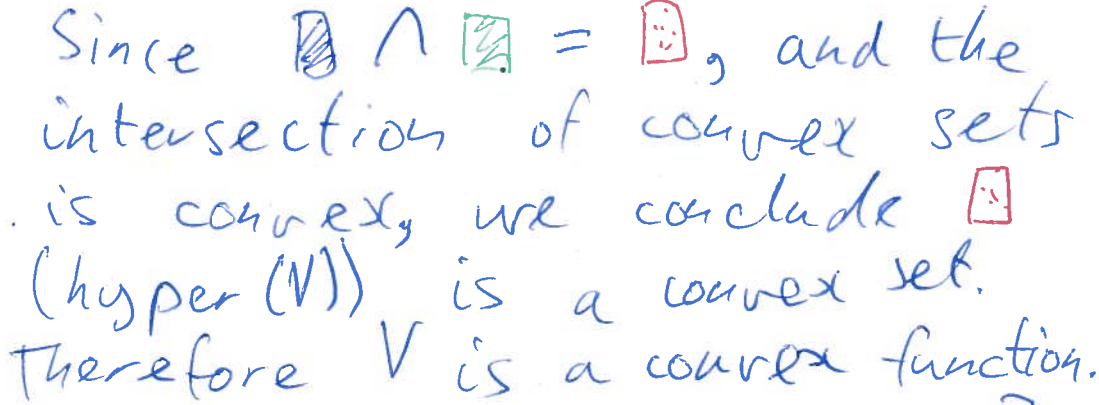 Since ∩ = , and the
intersection of convex sets
is convex, we conclude
(hyper(V)) is a convex set.
Therefore V is a convex function.